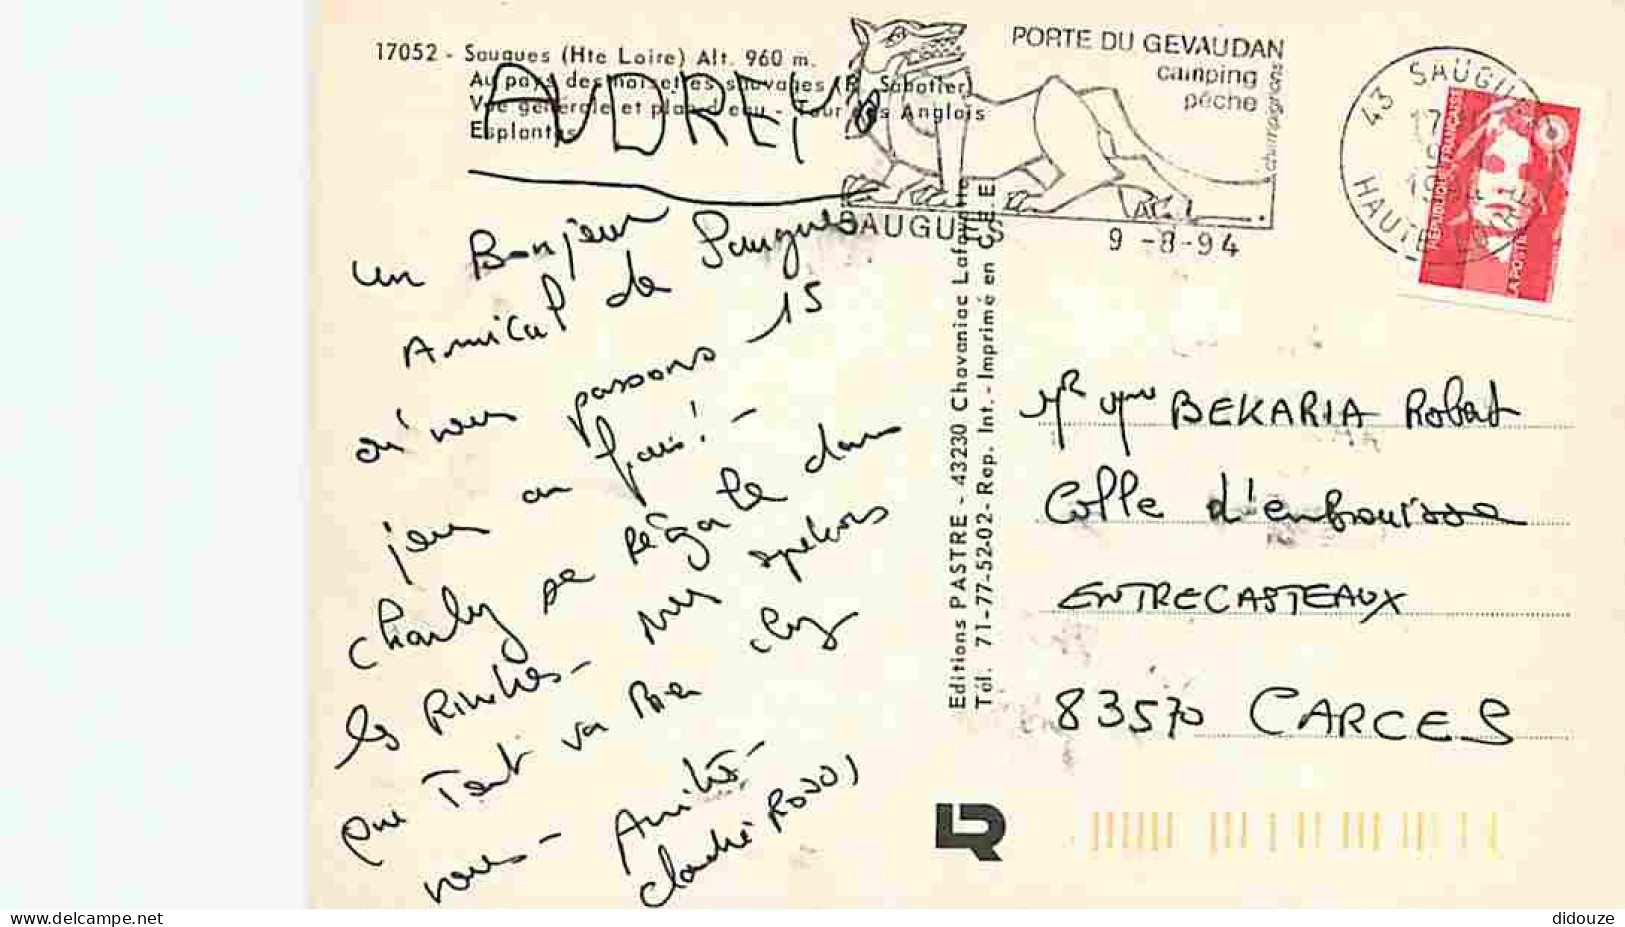 17052 - Saugues (Hte Loire) Alt. 960 m.
Au pays des noisettes sauvages (R. Sabatier)
Vue générale et plan d'eau - Tour des Anglais
Esplantas
AUDREY
PORTE DU GEVAUDAN
camping
pêche
champignons
SAUGUES
9 -8-94
43 SAUGUES
HAUTE LOIRE
RÉPUBLIQUE FRANÇAISE
LA POSTE
un Bonjour
Amical de Saugues
où nous passons 15
jours au frais! -
Charly se régale dans
les Rivières -
que Tout va bien chez
vous - Amitiés -
Editions PASTRE - 43230 Chavaniac Lafayette
Tél. 71-77-52-02 - Rep. Int. - Imprimé en C.E.E.
Mr Mme BEKARIA Robert
Colle d'enbouisse
ENTRECASTEAUX
83570 CARCES
www.delcampe.net
didouze